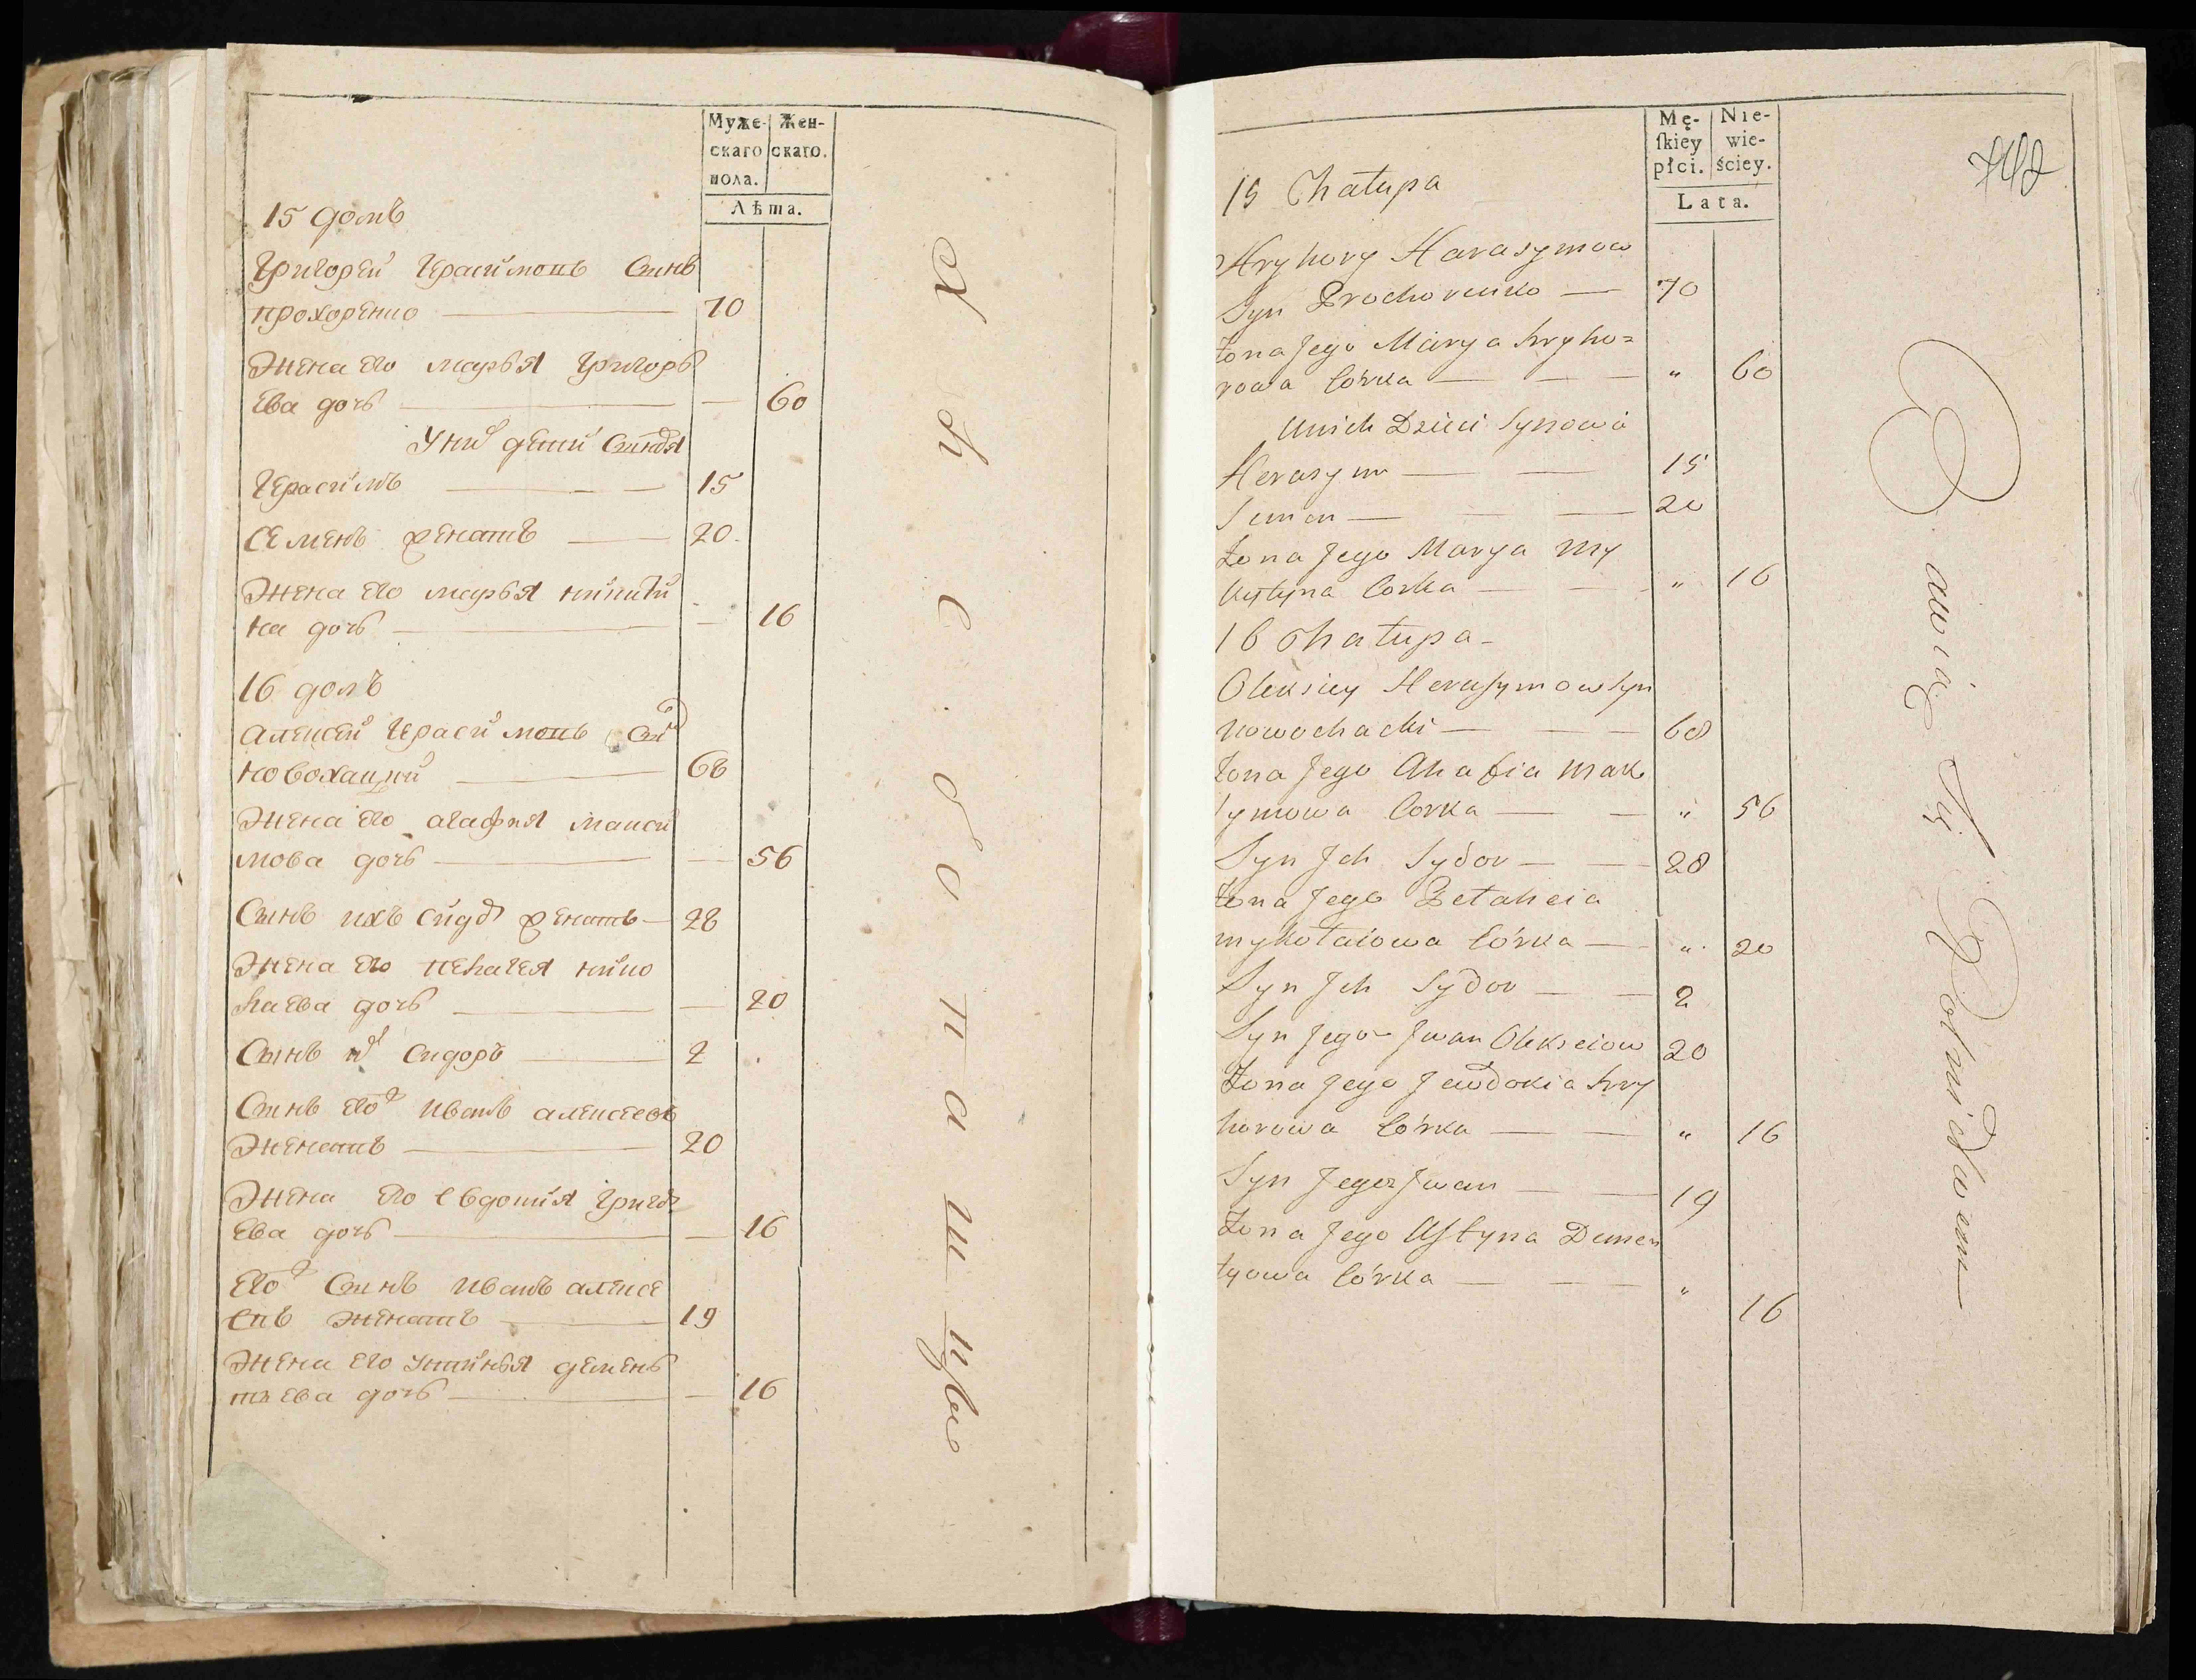 Муже-
скаго
пола.
Жен-
скаго.
Лѣта.
15 домъ
Григорей Герасимовъ Сынъ
прохоренко — 70
Жена его марья Григорь
ева дочь — 60
У них дети Сыновья
Герасимъ — 15
Семенъ женатъ — 20
Жена его марья никити
на дочь — 16
16 домъ
алексей Герасимовъ Сынъ
новохацкий — 68
Жена его агафия макси
мова дочь — 56
Сынъ ихъ сидор женатъ — 28
Жена его пелагея нико
лаева дочь — 20
Сынъ их Сидоръ — 2
Сынъ его иванъ алексеевъ
Женатъ — 20
Жена его евдокия Григор
ева дочь — 16
Его Сынъ иванъ алексе
евъ женатъ — 19
Жена его устинья демень
тьева дочь — 16
Mę-
ſkiey
płci.
Nie-
wie-
ściey.
Lata.
15 Chałupa
Hryhory Harasymow
Syn Prochorenko — 70
Żona Jego Marya hryho=
rowa Córka — " 60
Unich Dzieci Synowie
Herasym — 15
Semen — 20
Żona Jego Marya My
kytyna Corka — " 16
16 Chałupa
Oleksiey Herasymow Syn
Nowochacki — 68
Żona Jego Ahafia Mak
symowa Corka — " 56
Syn Jch Sydor — 28
Żona Jego Pełaheia
mykołaiowa Córka — " 20
Syn Jch Sydor — 2
Syn Jego Jwan Olekseiow 20
Żona Jego Jewdokia hry
horowa Córka — " 16
Syn Jego Jwan — 19
Żona Jego Ustyna Demen
tyowa Córka — " 16